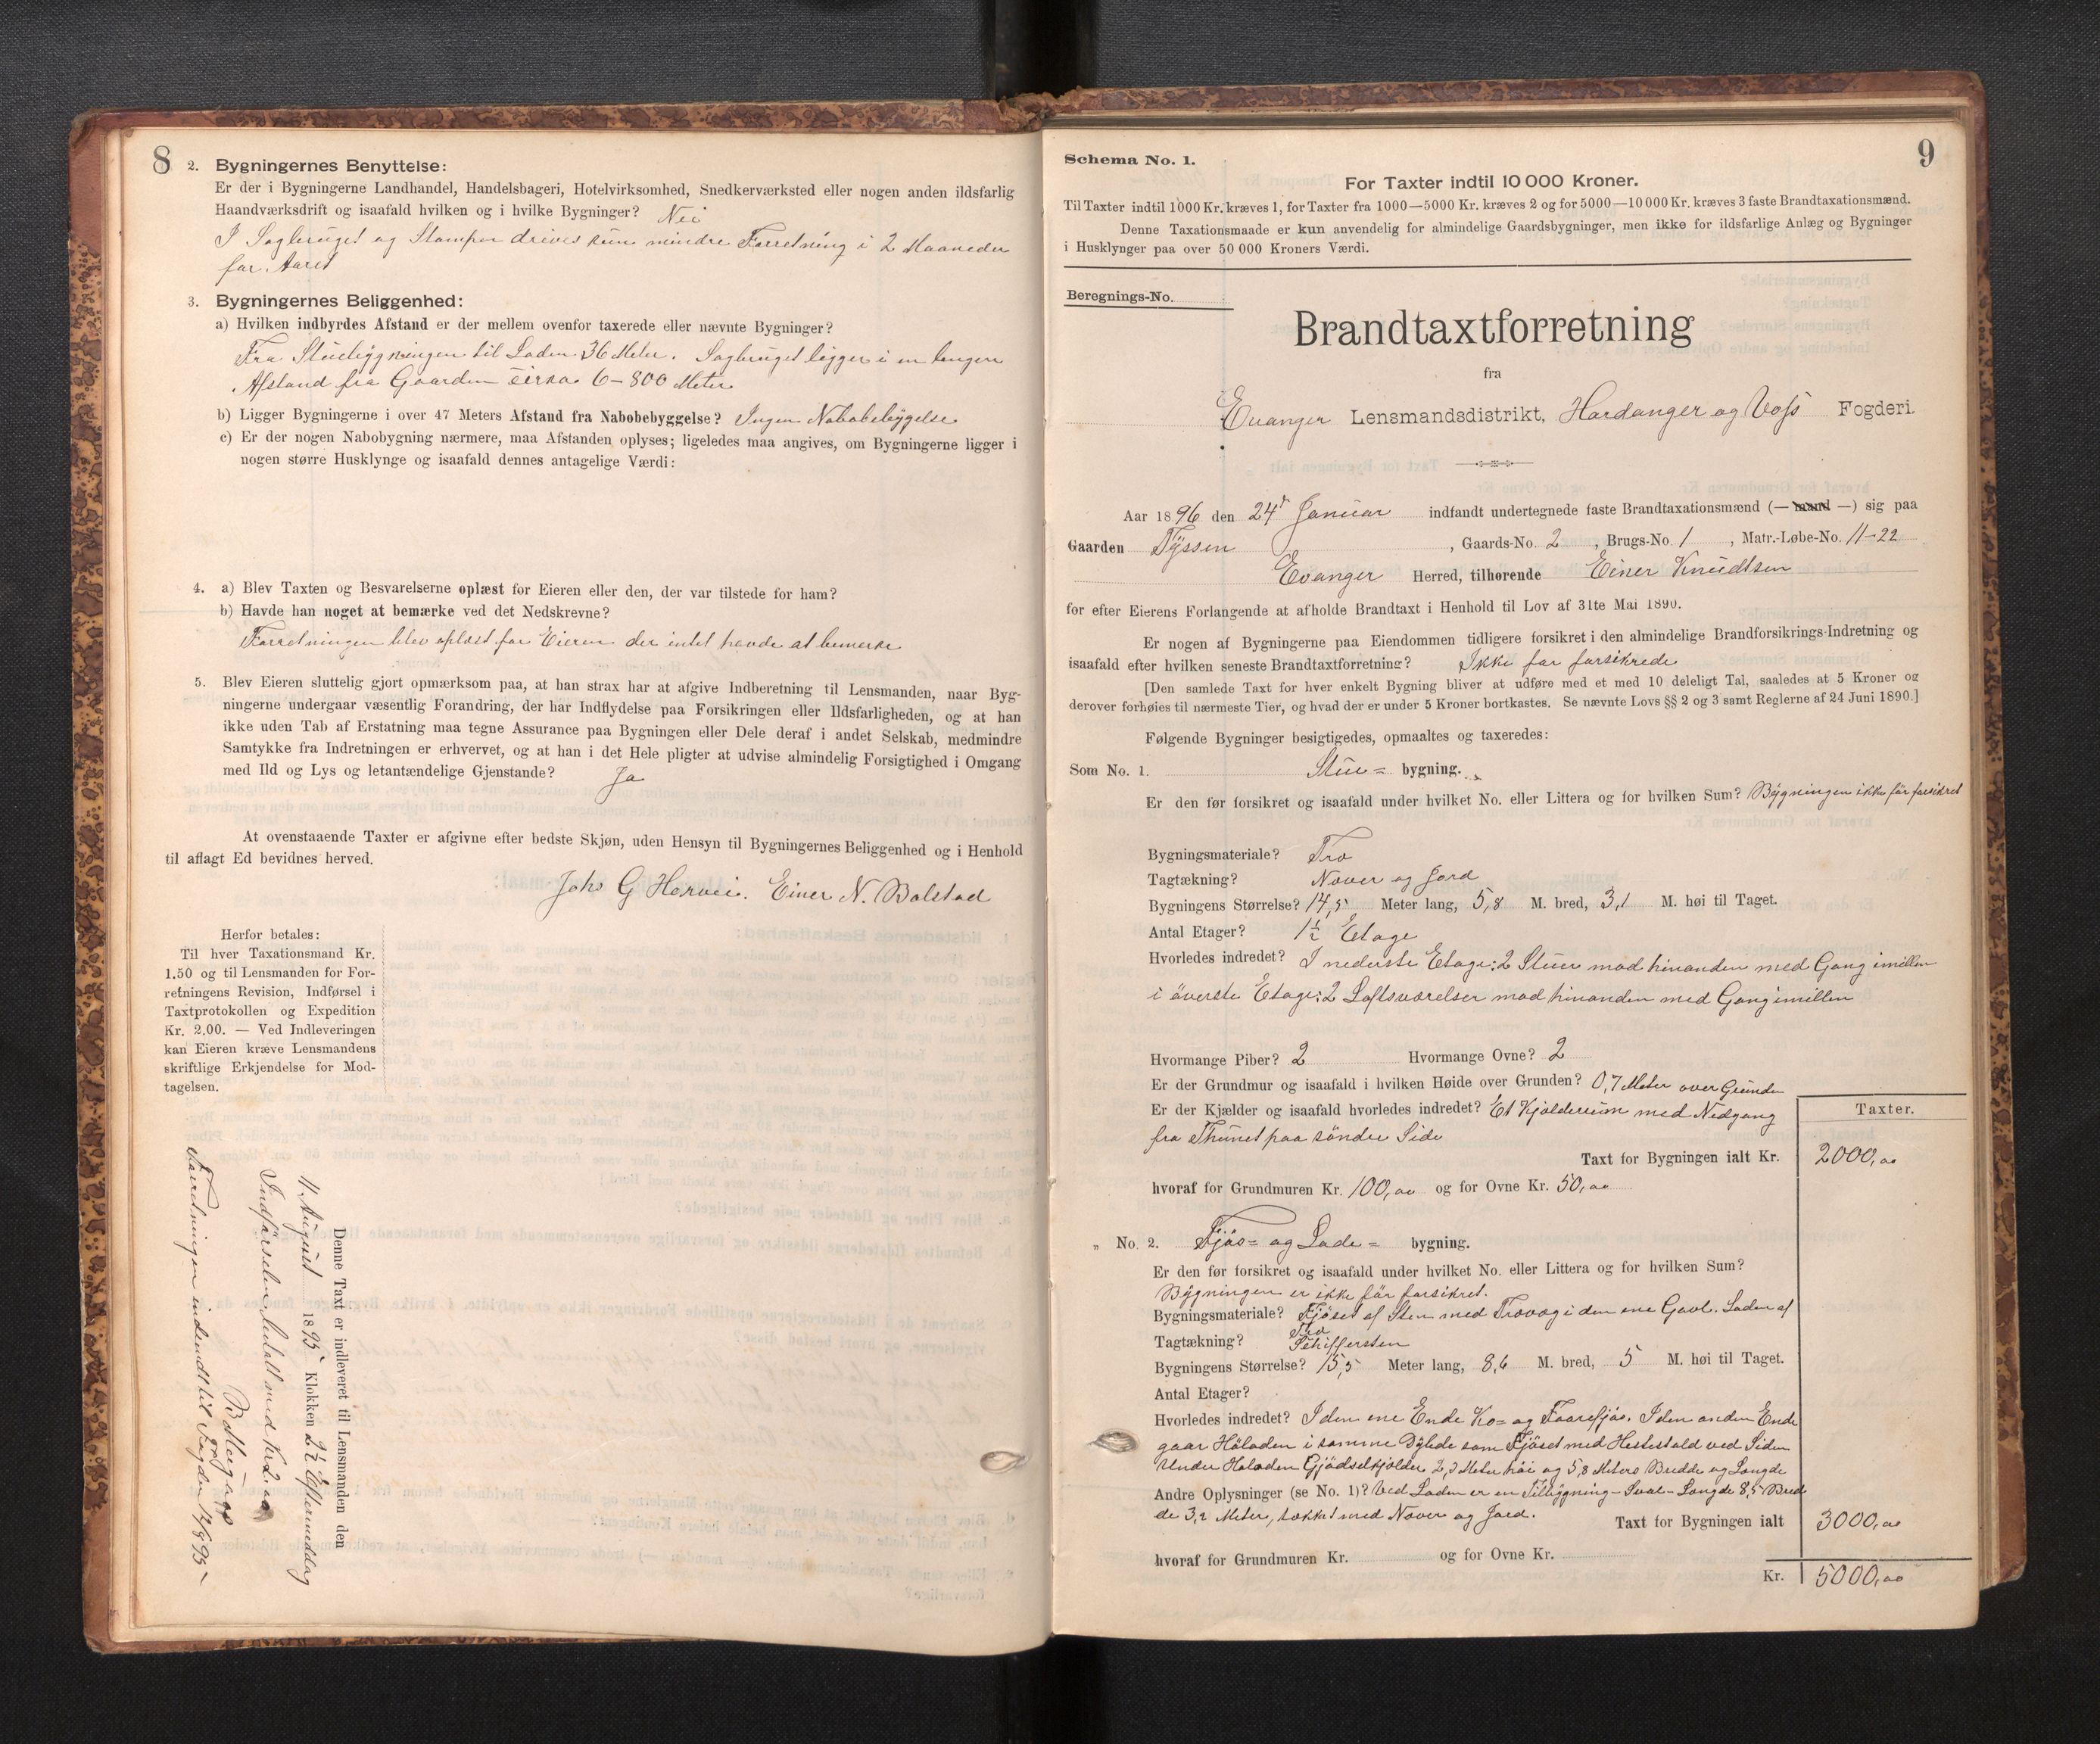 8
2. Bygningernes Benyttelse:
Er der i Bygningerne Landhandel, Handelsbageri, Hotelvirksomhed, Snedkerværksted eller nogen anden ildsfarlig
Haandværksdrift og isaafald hvilken og i hvilke Bygninger? Nei
I Sagbruget og Stampen drives kun mindre Forretning i 2 Maaneder
for Aaret
3. Bygningernes Beliggenhed:
a) Hvilken indbyrdes Afstand er der mellem ovenfor taxerede eller nævnte Bygninger?
Fra Stuebygningen til Laden 36 Meter. Sagbruget ligger i en længere
Afstand fra Gaarden cirka 6-800 Meter
b) Ligger Bygningerne i over 47 Meters Afstand fra Nabobebyggelse? Ingen Nabobebyggelse
c) Er der nogen Nabobygning nærmere, maa Afstanden oplyses; ligeledes maa angives, om Bygningerne ligger i
nogen større Husklynge og isaafald dennes antagelige Værdi:
4. a) Blev Taxten og Besvarelserne oplæst for Eieren eller den, der var tilstede for ham?
b) Havde han noget at bemærke ved det Nedskrevne?
Forretningen blev oplæst for Eieren der intet havde at bemærke
5. Blev Eieren sluttelig gjort opmærksom paa, at han strax har at afgive Indberetning til Lensmanden, naar Byg-
ningerne undergaar væsentlig Forandring, der har Indflydelse paa Forsikringen eller Ildsfarligheden, og at han
ikke uden Tab af Erstatning maa tegne Assurance paa Bygningen eller Dele deraf i andet Selskab, medmindre
Samtykke fra Indretningen er erhvervet, og at han i det Hele pligter at udvise almindelig Forsigtighed i Omgang
med Ild og Lys og letantændelige Gjenstande? Ja
At ovenstaaende Taxter er afgivne efter bedste Skjøn, uden Hensyn til Bygningernes Beliggenhed og i Henhold
til aflagt Ed bevidnes herved.
Johs G Horvei. Einer N. Bolstad
Herfor betales:
Til hver Taxationsmand Kr.
1.50 og til Lensmanden for For-
retningens Revision, Indførsel i
Taxtprotokollen og Expedition
Kr. 2.00. — Ved Indleveringen
kan Eieren kræve Lensmandens
skriftlige Erkjendelse for Mod-
tagelsen.
Denne Taxt er indleveret til Lensmanden den
11 August 1895 Klokken 2½ Eftermiddag
Indførselen betalt med Kr 2,00
Forretningen indsendt til Fogden 12/8 95
9
Schema No. 1.
For Taxter indtil 10 000 Kroner.
Til Taxter indtil 1000 Kr. kræves 1, for Taxter fra 1000—5000 Kr. kræves 2 og for 5000—10 000 Kr. kræves 3 faste Brandtaxationsmænd.
Denne Taxationsmaade er kun anvendelig for almindelige Gaardsbygninger, men ikke for ildsfarlige Anlæg og Bygninger
i Husklynger paa over 50 000 Kroners Værdi.
Beregnings-No.
Brandtaxtforretning
fra
Evanger Lensmandsdistrikt, Hardanger og Voss Fogderi.
Aar 1896 den 24d Januar indfandt undertegnede faste Brandtaxationsmænd (— mand —) sig paa
Gaarden Tyssen, Gaards-No. 2, Brugs-No. 1, Matr.-Løbe-No. 11-22
Evanger Herred, tilhørende Einer Knudtsen
for efter Eierens Forlangende at afholde Brandtaxt i Henhold til Lov af 31te Mai 1890.
Er nogen af Bygningerne paa Eiendommen tidligere forsikret i den almindelige Brandforsikrings-Indretning og
isaafald efter hvilken seneste Brandtaxtforretning? Ikke før forsikrede
[Den samlede Taxt for hver enkelt Bygning bliver at udføre med et med 10 deleligt Tal, saaledes at 5 Kroner og
derover forhøies til nærmeste Tier, og hvad der er under 5 Kroner bortkastes. Se nævnte Lovs §§ 2 og 3 samt Reglerne af 24 Juni 1890.]
Følgende Bygninger besigtigedes, opmaaltes og taxeredes:
Som No. 1. Stue= bygning.
Er den før forsikret og isaafald under hvilket No. eller Littera og for hvilken Sum? Bygningen ikke før forsikret
Bygningsmateriale? Træ
Tagtækning? Næver og Jord
Bygningens Størrelse? 14,5 Meter lang, 5,8 M. bred, 3,1 M. høi til Taget.
Antal Etager? 1½ Etage
Hvorledes indredet? I nederste Etage: 2 Stuer mod hinanden med Gang imellem
i øverste Etage: 2 Loftsværelser mod hinanden med Gang imellem
Hvormange Piber? 2 Hvormange Ovne? 2
Er der Grundmur og isaafald i hvilken Høide over Grunden? 0,7 Meter over Grunden
Er der Kjælder og isaafald hvorledes indredet? Et Kjælderrum med Nedgang
fra Thunet paa søndre Side
Taxter.
Taxt for Bygningen ialt Kr. 2000,00
hvoraf for Grundmuren Kr. 100,00 og for Ovne Kr. 50,00
„ No. 2. Fjøs= og Lade= bygning.
Er den før forsikret og isaafald under hvilket No. eller Littera og for hvilken Sum?
Bygningen er ikke før forsikret.
Bygningsmateriale? Fjøset af Sten med Trævæg i den ene Gavl. Laden af
Træ
Tagtækning? Skiffersten
Bygningens Størrelse? 15,5 Meter lang, 8,6 M. bred, 5 M. høi til Taget.
Antal Etager?
Hvorledes indredet? I den ene Ende Ko= og Faarefjøs. I den anden Ende
gaar Høladen i samme Dybde som Fjøset med Hestestald ved Siden
Under Høladen Gjødselkjelder 2,3 Meter høi og 5,8 Meters Bredde og Længde
Andre Oplysninger (se No. 1)? Ved Laden er en Tilbygning - Sval - Længde 8,5 Bred
de 3,2 Meter, tækket med Næver og Jord.
Taxt for Bygningen ialt 3000,00
hvoraf for Grundmuren Kr. og for Ovne Kr.
Kr. 5000,00